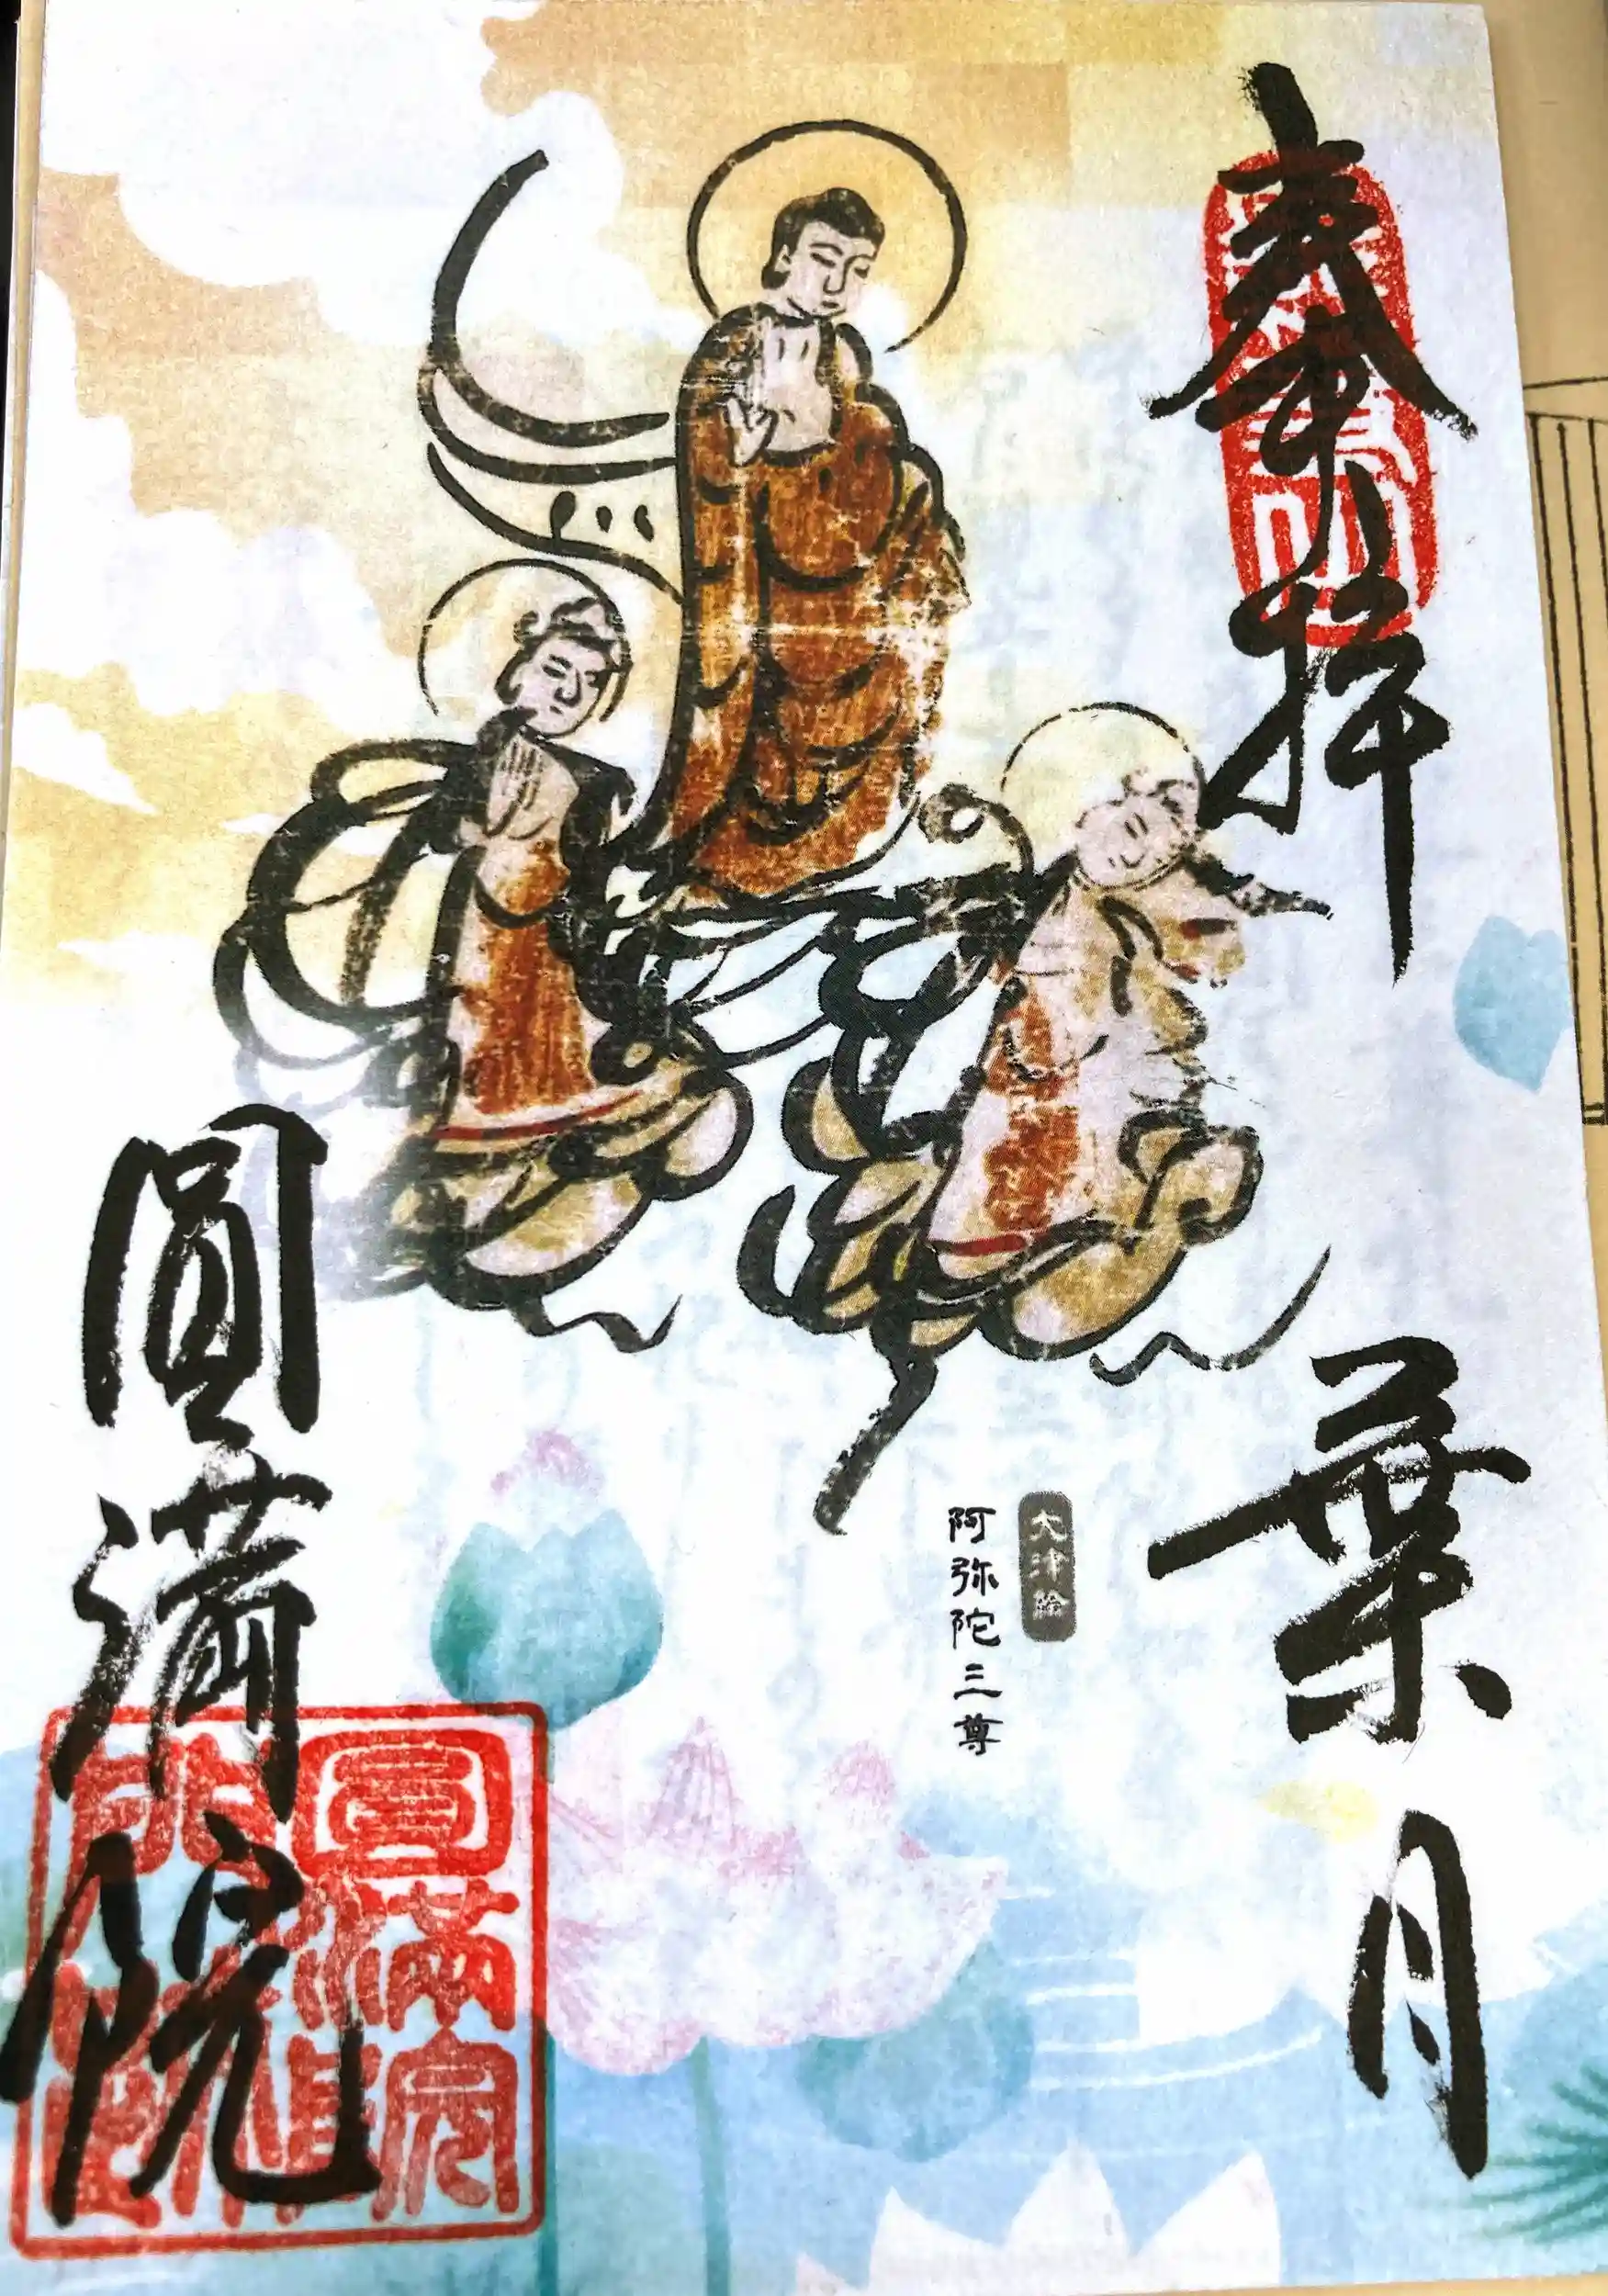 奉拝
葉月
大津絵
阿弥陀三尊
圓満院